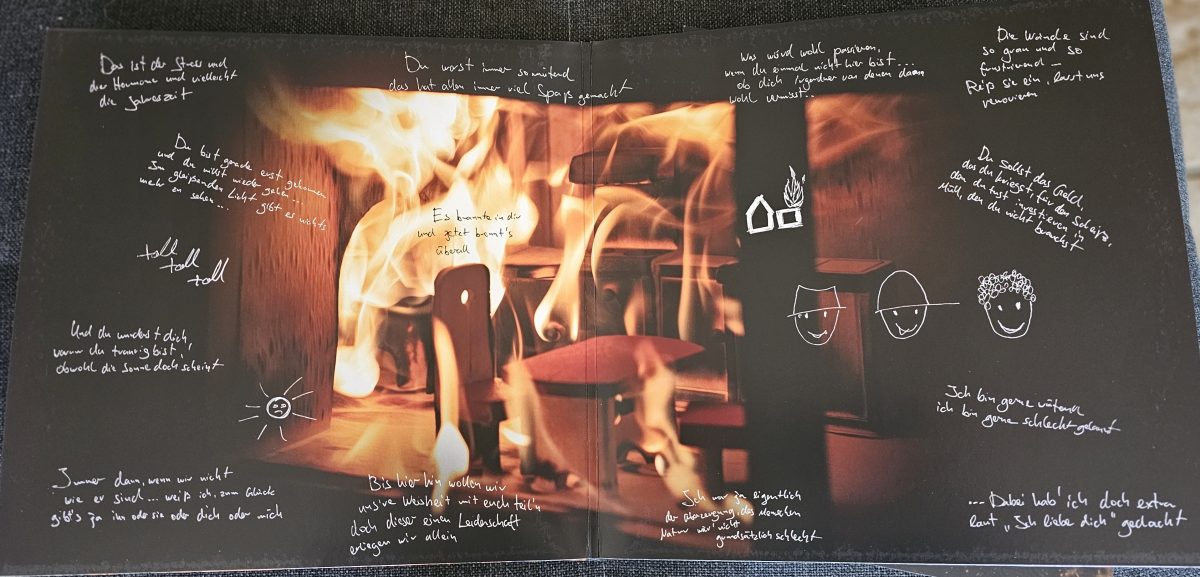 Das ist der Stress und
der Hormone und vielleicht
die Jahreszeit
Du warst immer so wütend
das hat allen immer viel Spaß gemacht
Was würd wohl passieren,
wenn du einmal nicht hier bist...
ob dich irgendwer von denen dann
wohl vermisst..
Die Wände sind
so grau und so
frustrierend –
Reiß sie ein, lasst uns
renovieren
Du bist grade erst gekommen
und du willst wieder gehen...
Im gleißenden Licht gibt es nichts
mehr zu sehen...
Es brannte in dir
und jetzt brennt's
überall
Du sollst das Geld,
das du kriegst, für den Scheiß,
den du tust investieren in
Müll, den du nicht brauchst
toll
toll
toll
Und du wunderst dich,
warum du traurig bist,
obwohl die Sonne doch scheint
Ich bin gerne wütend
ich bin gerne schlecht gelaunt
Immer dann, wenn wir nicht
wir sind... weiß ich, zum Glück
gibt's ja ihn oder sie oder dich oder mich
Bis hier hin wollen wir
uns're Weisheit mit euch teil'n
doch dieser einen Leidenschaft
erliegen wir allein
Ich war ja eigentlich
der Überzeugung, des Menschen
Natur wär' nicht
grundsätzlich schlecht
... Dabei hab' ich doch extra
laut „Ich liebe dich" gedacht